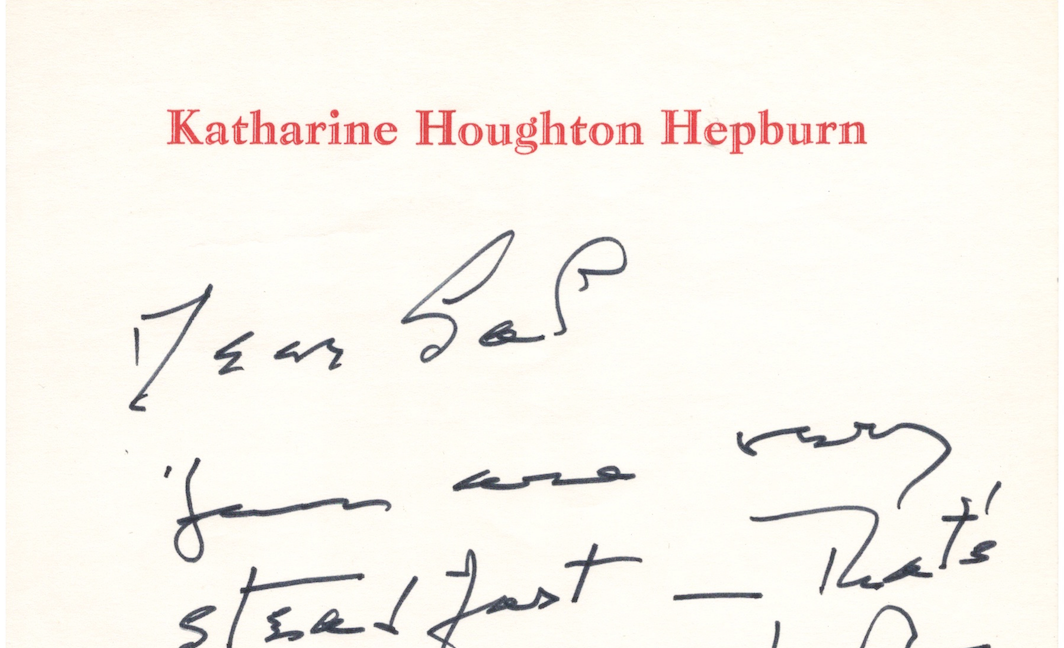 Katharine Houghton Hepburn
Dear
You are very
steadfast — That's